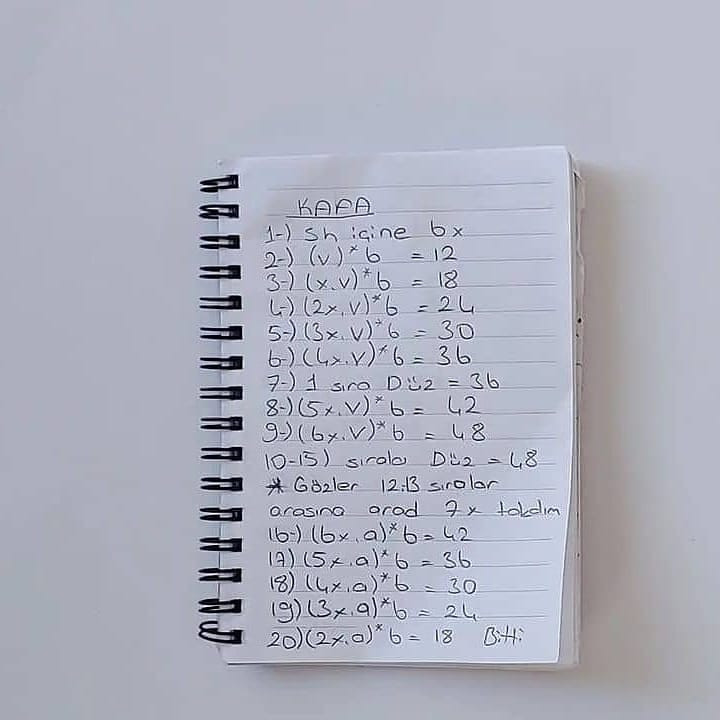 KAFA
1-) Sh içine 6x
2-) (v)*6 = 12
3-) (x.v)*6 = 18
4-) (2x.v)*6 = 24
5-) (3x.v)*6 = 30
6-) (4x.v)*6 = 36
7-) 1 sıra Düz = 36
8-) (5x.v)*6 = 42
9-) (6x.v)*6 = 48
10-15) sırala Düz = 48
* Gözler 12.13 sıralar
arasına arad 7x takdım
16-) (6x.a)*6 = 42
17) (5x.a)*6 = 36
18) (4x.a)*6 = 30
19) (3x.a)*6 = 24
20) (2x.a)*6 = 18 Bitti